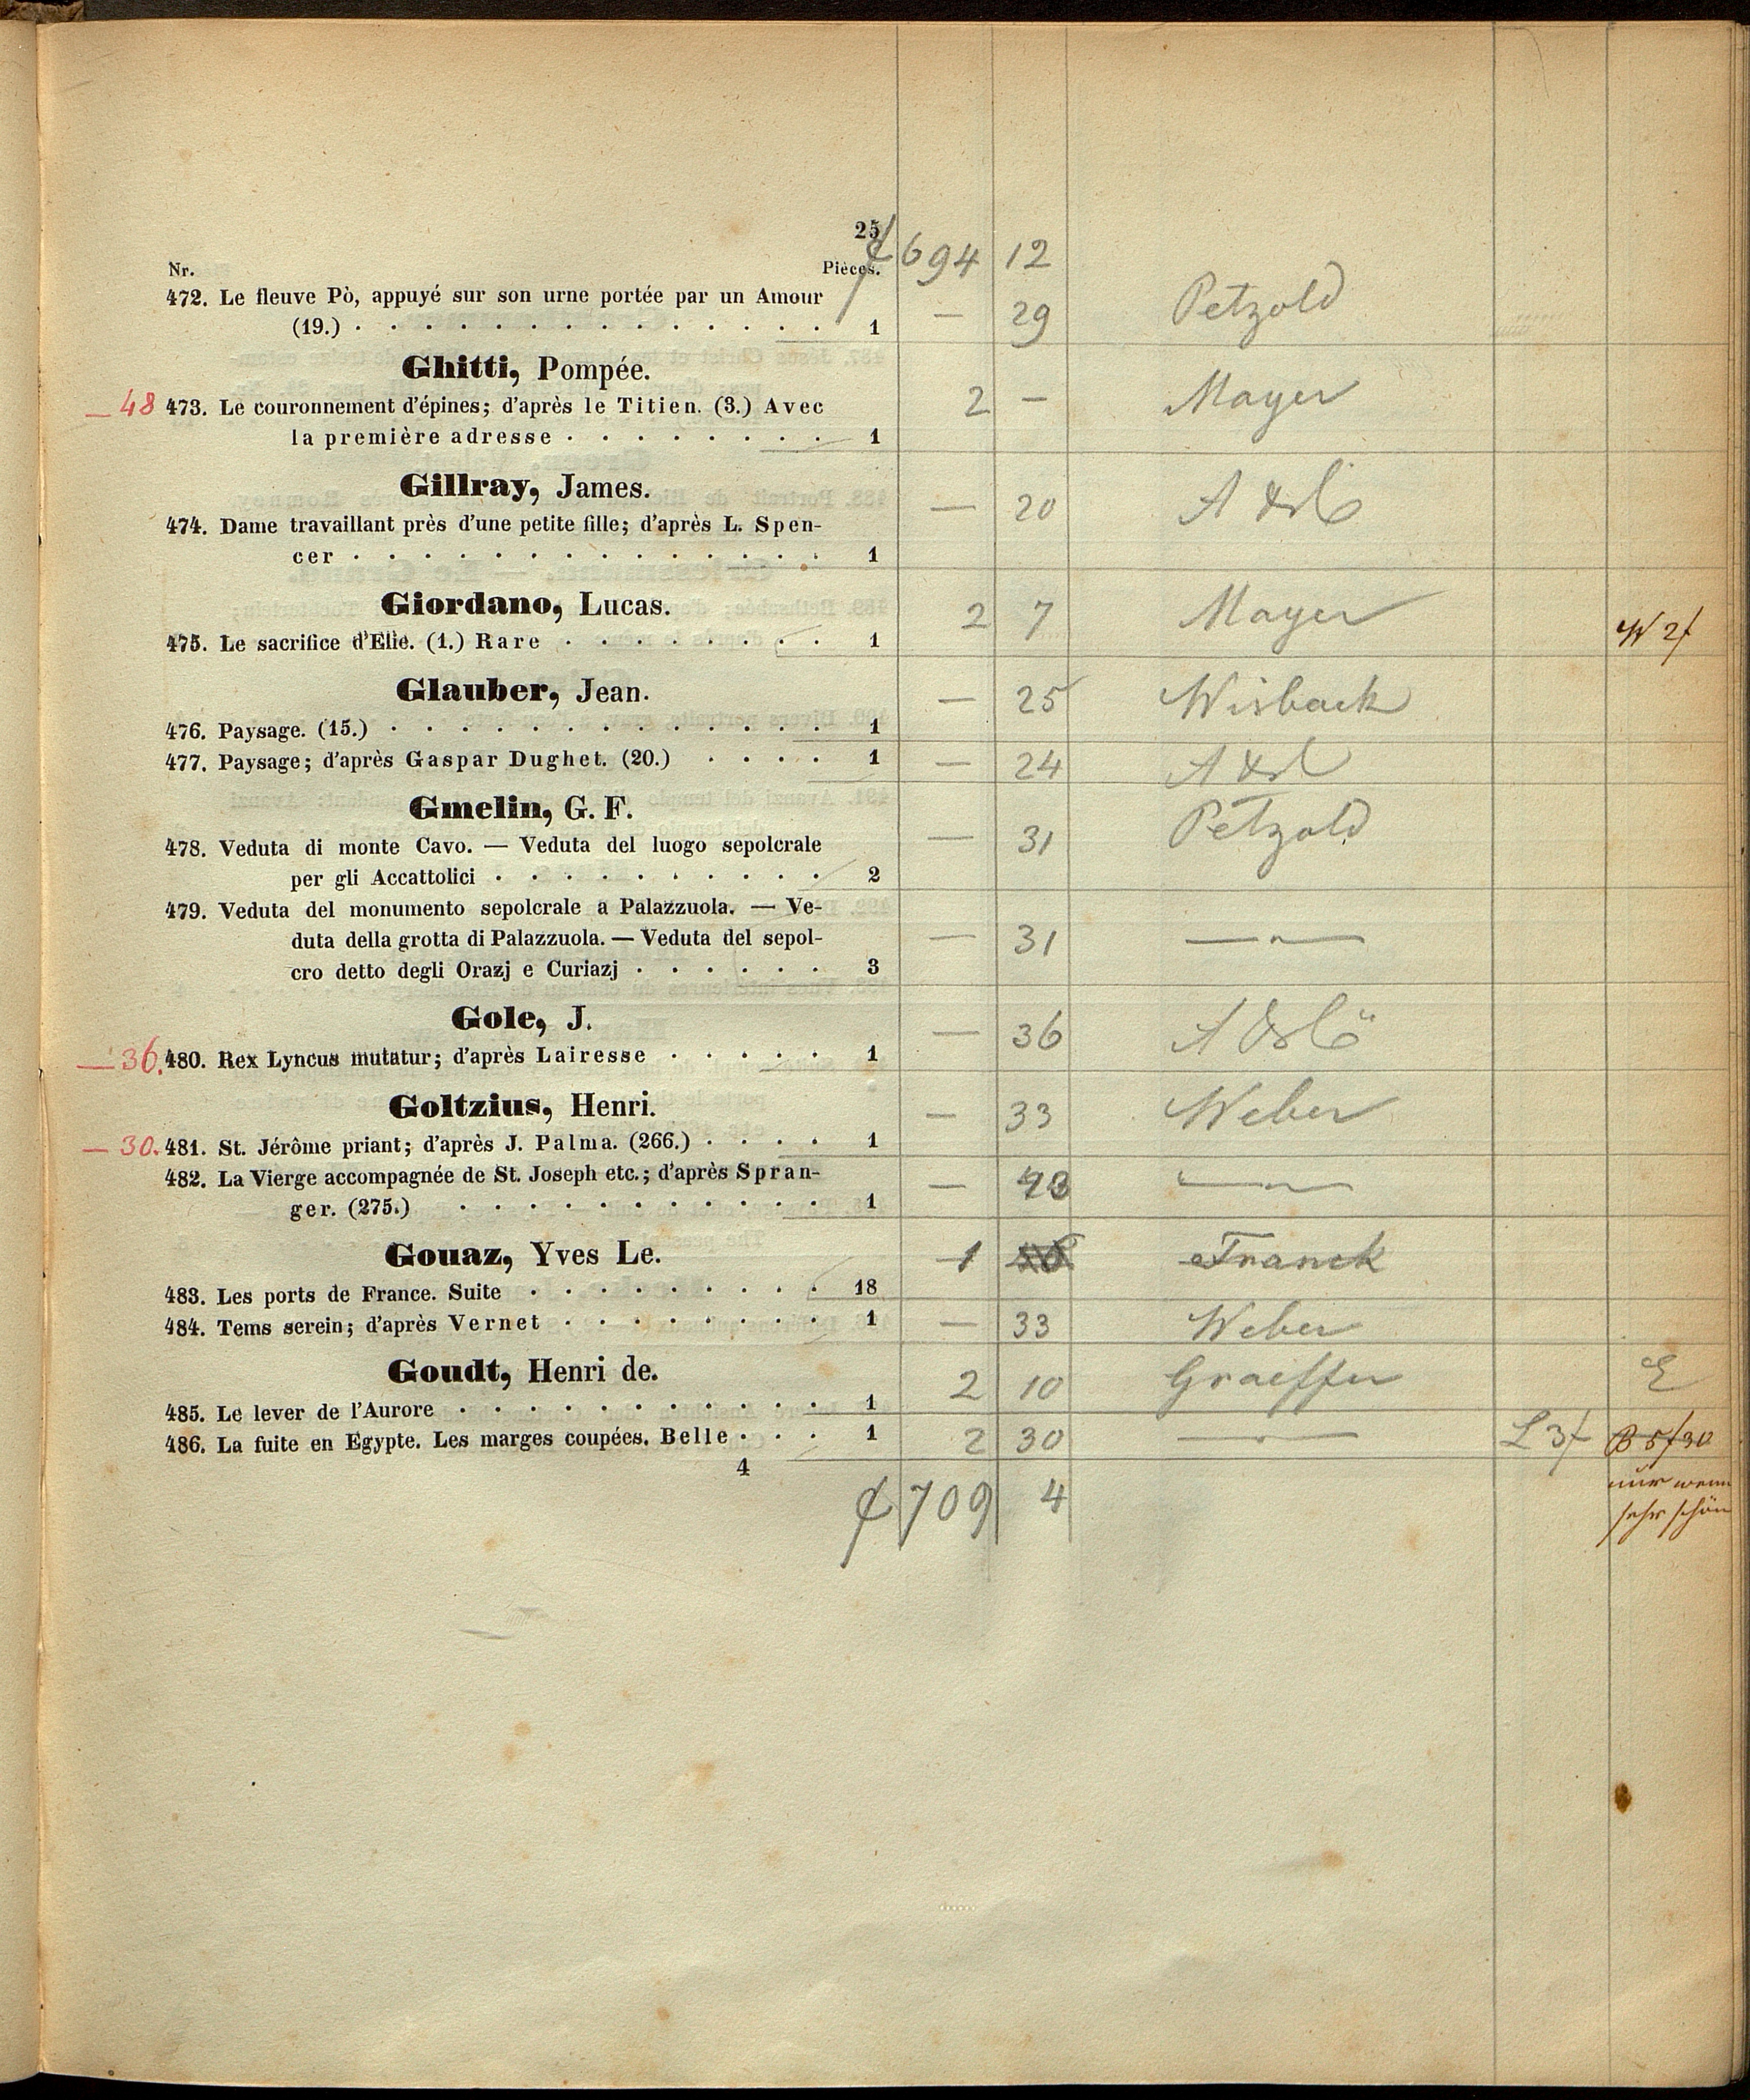 25
f 694 12
Nr. Pièces.
472. Le fleuve Pò, appuyé sur son urne portée par un Amour
(19.) . . . . . . . . . . . . . . 1 — 29 Petzold
Ghitti, Pompée.
— 48 473. Le couronnement d'épines; d'après le Titien. (3.) Avec 2 — Mayer
la première adresse . . . . . . . . 1
Gillray, James.
474. Dame travaillant près d'une petite fille; d'après L. Spen- — 20
cer . . . . . . . . . . . . . . 1
Giordano, Lucas.
475. Le sacrifice d'Elie. (1.) Rare . . . . . . . . 1 2 7 Mayer W 2f
Glauber, Jean.
476. Paysage. (15.) . . . . . . . . . . . . . 1 — 25 Wisback
477. Paysage; d'après Gaspar Dughet. (20.) . . . . 1 — 24
Gmelin, G. F.
478. Veduta di monte Cavo. — Veduta del luogo sepolcrale — 31 Petzold
per gli Accattolici . . . . . . . . . . 2
479. Veduta del monumento sepolcrale a Palazzuola. — Ve-
duta della grotta di Palazzuola. — Veduta del sepol- — 31 — " —
cro detto degli Orazj e Curiazj . . . . . . 3
Gole, J.
— 36. 480. Rex Lyncus mutatur; d'après Lairesse . . . . . 1 — 36
Goltzius, Henri.
— 30. 481. St. Jérôme priant; d'après J. Palma. (266.) . . . . 1 — 33 Weber
482. La Vierge accompagnée de St. Joseph etc.; d'après Spran- — — " —
ger. (275.) . . . . . . . . . . . 1
Gouaz, Yves Le.
483. Les ports de France. Suite . . . . . . . . . 18 1 Franck
484. Tems serein; d'après Vernet . . . . . . . . 1 — 33 Weber
Goudt, Henri de.
485. Le lever de l'Aurore . . . . . . . . . . . 1 2 10 Graeffer E
486. La fuite en Egypte. Les marges coupées. Belle . . . 1 2 30 — " — L 3f B 5f30
4
nur wenn
sehr schön
f 709 4